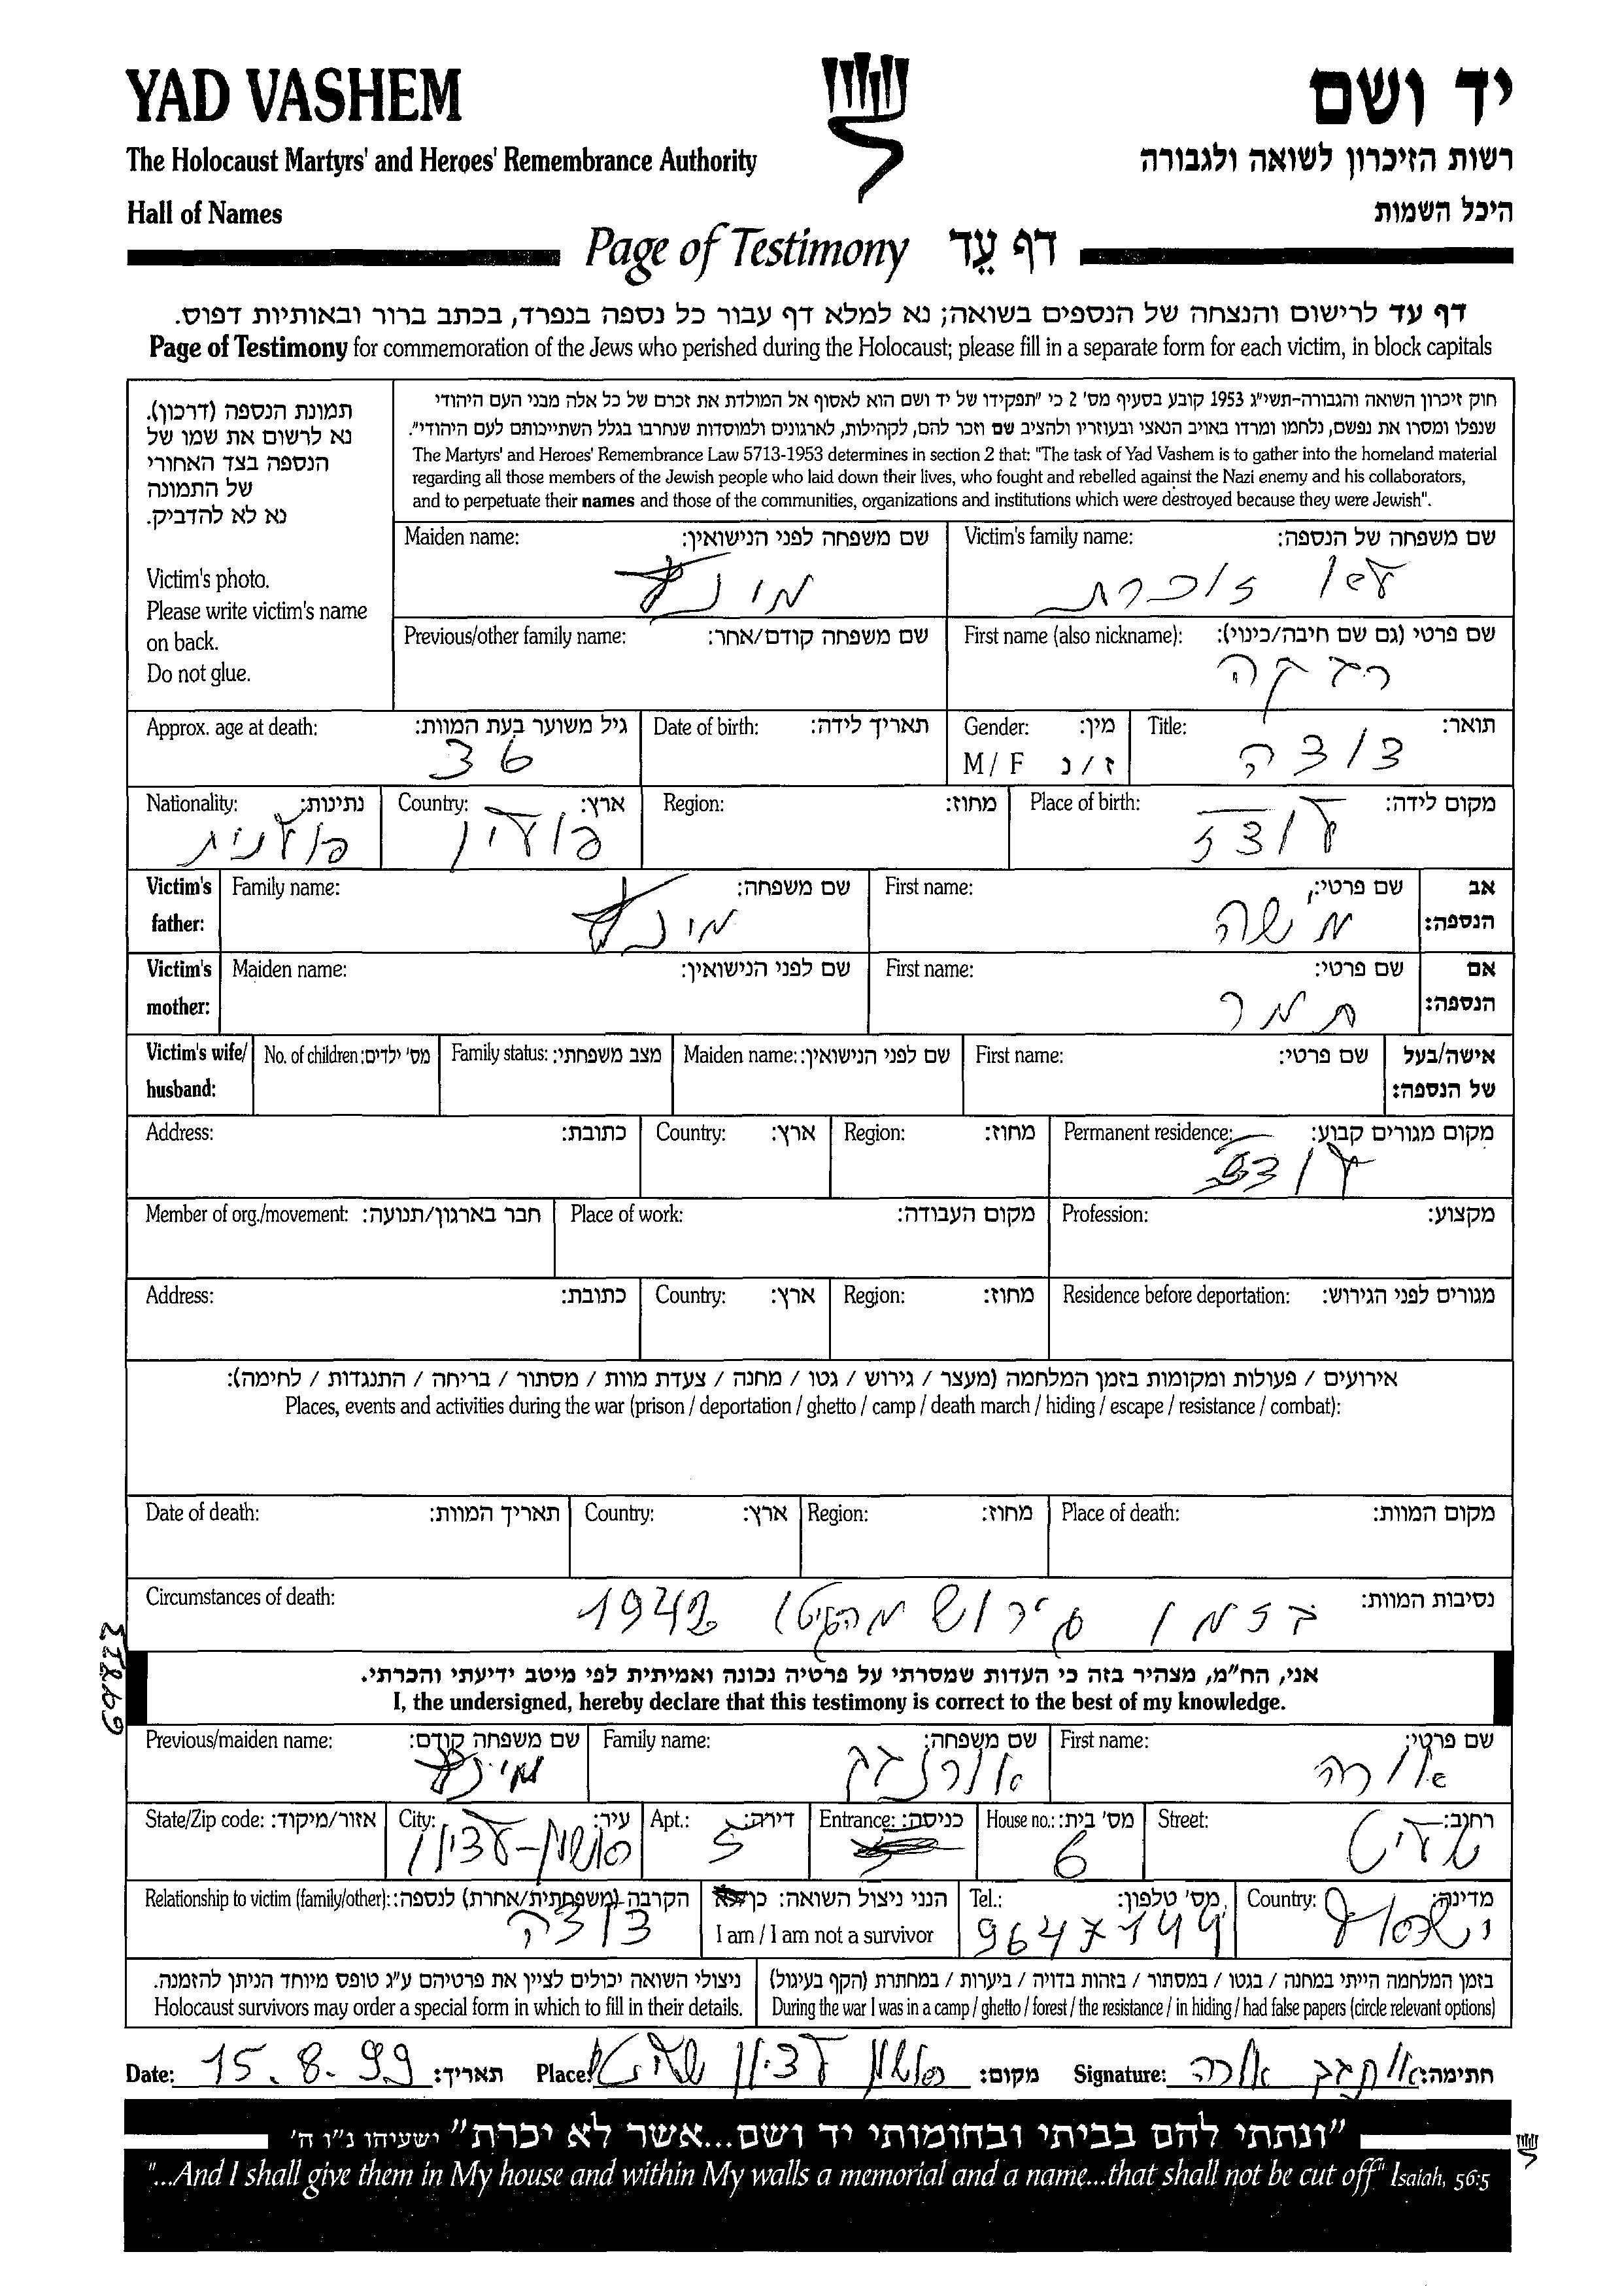 YAD VASHEM
יד ושם
The Holocaust Martyrs' and Heroes' Remembrance Authority
רשות הזיכרון לשואה ולגבורה
Hall of Names
היכל השמות
Page of Testimony דף עֵד
דף עד לרישום והנצחה של הנספים בשואה; נא למלא דף עבור כל נספה בנפרד, בכתב ברור ובאותיות דפוס.
Page of Testimony for commemoration of the Jews who perished during the Holocaust; please fill in a separate form for each victim, in block capitals
חוק זיכרון השואה והגבורה-תשי"ג 1953 קובע בסעיף מס' 2 כי "תפקידו של יד ושם הוא לאסוף אל המולדת את זכרם של כל אלה מבני העם היהודי
שנפלו ומסרו את נפשם, נלחמו ומרדו באויב הנאצי ובעוזריו ולהציב שם וזכר להם, לקהילות, לארגונים ולמוסדות שנחרבו בגלל השתייכותם לעם היהודי".
The Martyrs' and Heroes' Remembrance Law 5713-1953 determines in section 2 that: "The task of Yad Vashem is to gather into the homeland material
regarding all those members of the Jewish people who laid down their lives, who fought and rebelled against the Nazi enemy and his collaborators,
and to perpetuate their names and those of the communities, organizations and institutions which were destroyed because they were Jewish".
תמונת הנספה (דרכון).
נא לרשום את שמו של
הנספה בצד האחורי
של התמונה
נא לא להדביק.
Victim's photo.
Please write victim's name
on back.
Do not glue.
Victim's family name: שם משפחה של הנספה:
לא זוכרת
Maiden name: שם משפחה לפני הנישואין:
First name (also nickname): שם פרטי (גם שם חיבה/כינוי):
רבקה
Previous/other family name: שם משפחה קודם/אחר:
Title: תואר:
דודה
Gender: מין:
M / F ז / נ
Date of birth: תאריך לידה:
Approx. age at death: גיל משוער בעת המוות:
36
Place of birth: מקום לידה:
לודז
Region: מחוז:
Country: ארץ:
פולין
Nationality: נתינות:
פולנית
Victim's father: אב הנספה:
First name: שם פרטי:
משה
Family name: שם משפחה:
Victim's mother: אם הנספה:
First name: שם פרטי:
תמר
Maiden name: שם לפני הנישואין:
Victim's wife/ husband: אישה/בעל של הנספה:
First name: שם פרטי:
Maiden name: שם לפני הנישואין:
Family status: מצב משפחתי:
No. of children: מס' ילדים:
Permanent residence: מקום מגורים קבוע:
לודז
Region: מחוז:
Country: ארץ:
Address: כתובת:
Profession: מקצוע:
Place of work: מקום העבודה:
Member of org./movement: חבר בארגון/תנועה:
Residence before deportation: מגורים לפני הגירוש:
Region: מחוז:
Country: ארץ:
Address: כתובת:
אירועים / פעולות ומקומות בזמן המלחמה (מעצר / גירוש / גטו / מחנה / צעדת מוות / מסתור / בריחה / התנגדות / לחימה):
Places, events and activities during the war (prison / deportation / ghetto / camp / death march / hiding / escape / resistance / combat):
Place of death: מקום המוות:
Region: מחוז:
Country: ארץ:
Date of death: תאריך המוות:
Circumstances of death: נסיבות המוות:
בזמן גירוש מהגיטו 1942
אני, הח"מ, מצהיר בזה כי העדות שמסרתי על פרטיה נכונה ואמיתית לפי מיטב ידיעתי והכרתי.
I, the undersigned, hereby declare that this testimony is correct to the best of my knowledge.
First name: שם פרטי:
אורה
Family name: שם משפחה:
Previous/maiden name: שם משפחה קודם:
Street: רחוב:
House no.: מס' בית:
6
Entrance: כניסה:
Apt.: דירה:
5
City: עיר:
ראשון-לציון
State/Zip code: אזור/מיקוד:
Country: מדינה:
ישראל
Tel.: מס' טלפון:
9647144
הנני ניצול השואה: כן
I am / I am not a survivor
Relationship to victim (family/other): הקרבה (משפחתית/אחרת) לנספה:
דודה
בזמן המלחמה הייתי במחנה / בגטו / במסתור / בזהות בדויה / ביערות / במחתרת (הקף בעיגול)
During the war I was in a camp / ghetto / forest / the resistance / in hiding / had false papers (circle relevant options)
ניצולי השואה יכולים לציין את פרטיהם ע"ג טופס מיוחד הניתן להזמנה.
Holocaust survivors may order a special form in which to fill in their details.
Date: 15.8.99 תאריך: Place: ראשון לציון מקום: Signature: אורה חתימה:
"ונתתי להם בביתי ובחומותי יד ושם...אשר לא יכרת" ישעיהו נ"ו ה'
"...And I shall give them in My house and within My walls a memorial and a name...that shall not be cut off" Isaiah, 56:5